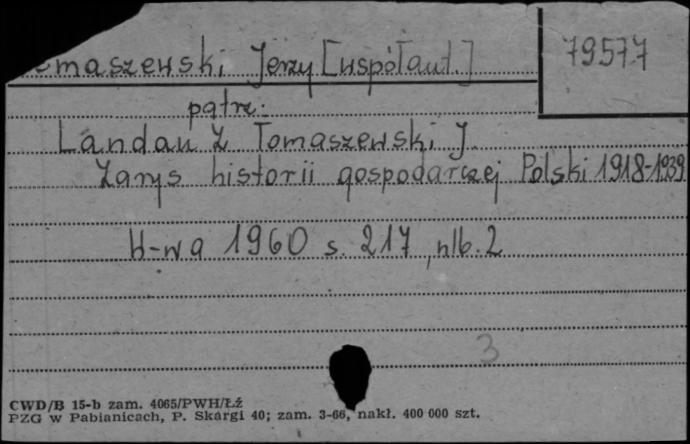 maszewski, Jerzy [współaut.]
79577
patrz:
Landau Z Tomaszewski, J.
Zarys historii gospodarczej Polski 1918-1939
W-wa 1960 s. 217, nlb. 2
3
CWD/B 15-b zam. 4065/PWH/Łź
PZG w Pabianicach, P. Skargi 40; zam. 3-66, nakł. 400 000 szt.